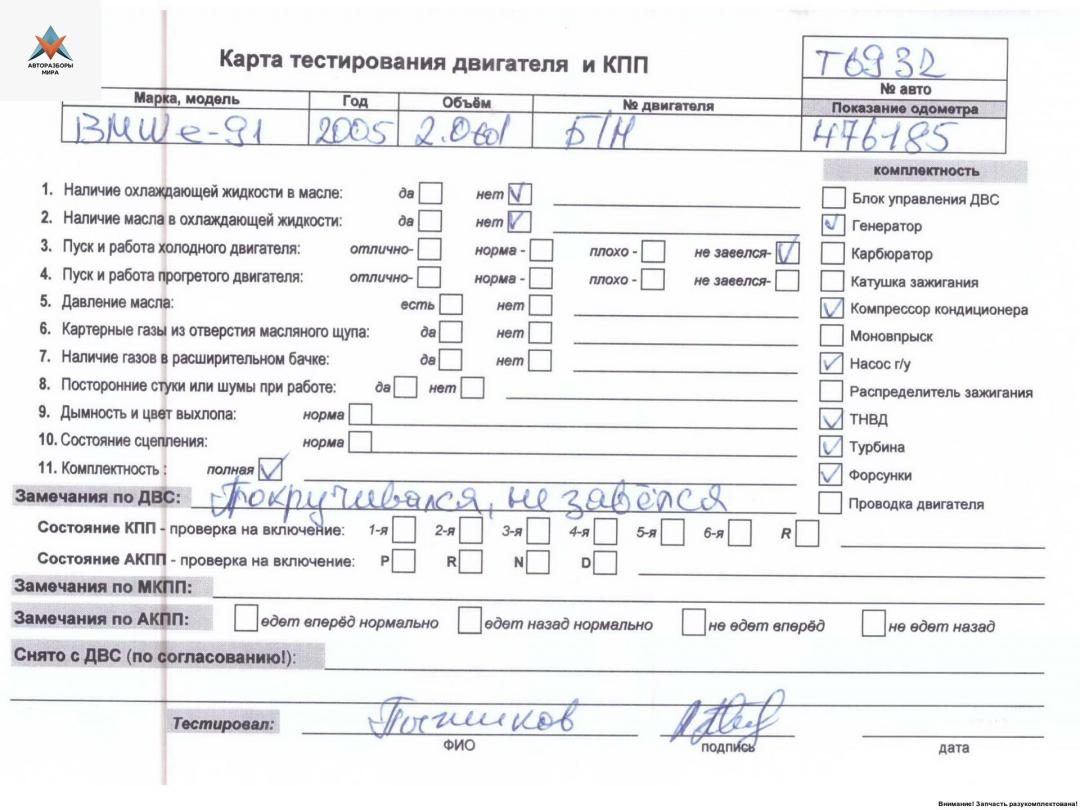 АВТОРАЗБОРЫ
МИРА
Карта тестирования двигателя и КПП
Т6932
№ авто
Марка, модель Год Объём № двигателя Показание одометра
BMW e-91 2005 2.0td Б/Н 476185
комплектность
1. Наличие охлаждающей жидкости в масле: да нет
Блок управления ДВС
2. Наличие масла в охлаждающей жидкости: да нет
Генератор
3. Пуск и работа холодного двигателя: отлично- норма - плохо - не завелся-
Карбюратор
4. Пуск и работа прогретого двигателя: отлично- норма - плохо - не завелся-
Катушка зажигания
5. Давление масла: есть нет
Компрессор кондиционера
6. Картерные газы из отверстия масляного щупа: да нет
Моновпрыск
7. Наличие газов в расширительном бачке: да нет
Насос г/у
8. Посторонние стуки или шумы при работе: да нет
Распределитель зажигания
9. Дымность и цвет выхлопа: норма
ТНВД
10. Состояние сцепления: норма
Турбина
11. Комплектность : полная
Форсунки
Замечания по ДВС: Покручивался, не завёлся
Проводка двигателя
Состояние КПП - проверка на включение: 1-я 2-я 3-я 4-я 5-я 6-я R
Состояние АКПП - проверка на включение: P R N D
Замечания по МКПП:
Замечания по АКПП: едет вперёд нормально едет назад нормально не едет вперёд не едет назад
Снято с ДВС (по согласованию!):
Тестировал:
ФИО подпись дата
Внимание! Запчасть разукомплектована!